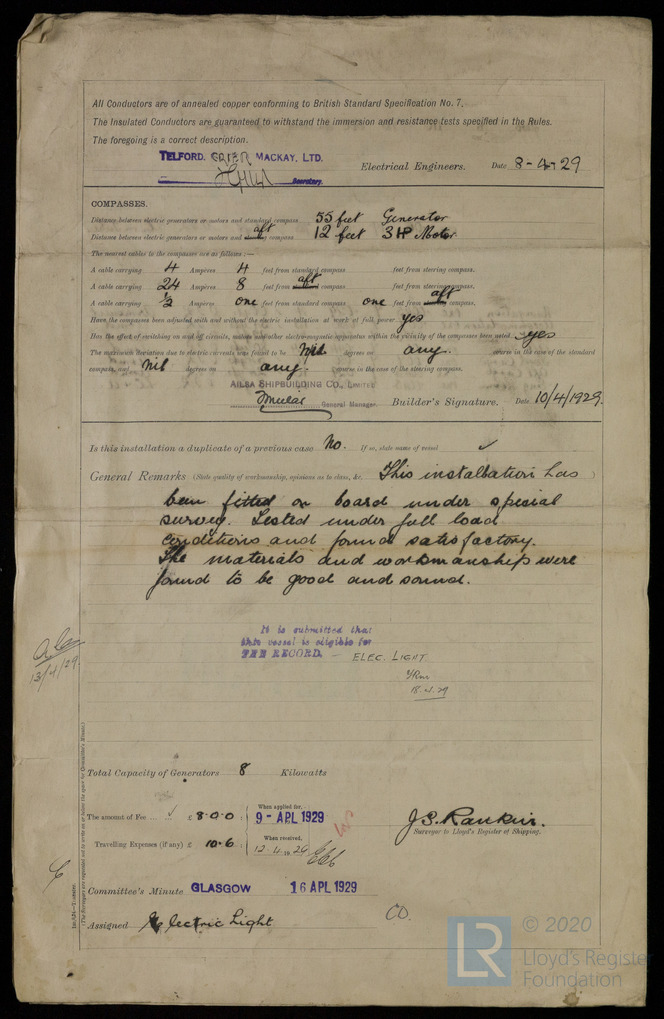 All Conductors are of annealed copper conforming to British Standard Specification No. 7.
The Insulated Conductors are guaranteed to withstand the immersion and resistance tests specified in the Rules.
The foregoing is a correct description.
TELFORD, GRIER, MACKAY, LTD.
Electrical Engineers. Date 8-4-29
Secretary.
COMPASSES.
Distance between electric generators or motors and standard compass 55 feet Generator
Distance between electric generators or motors and aft compass 12 feet 3 HP Motor
The nearest cables to the compasses are as follows:—
A cable carrying 4 Ampères 4 feet from standard compass feet from steering compass.
A cable carrying 24 Ampères 8 feet from aft compass feet from steering compass.
A cable carrying ½ Ampères one feet from standard compass one feet from aft compass.
Have the compasses been adjusted with and without the electric installation at work at full power yes
Has the effect of switching on and off circuits, motors and other electro-magnetic apparatus within the vicinity of the compasses been noted yes
The maximum deviation due to electric currents was found to be Nil degrees on any course in the case of the standard
compass, and Nil degrees on any course in the case of the steering compass.
AILSA SHIPBUILDING CO., LIMITED
General Manager. Builder's Signature. Date 10/4/1929.
Is this installation a duplicate of a previous case No. If so, state name of vessel ✓
General Remarks (State quality of workmanship, opinions as to class, &c. This installation has )
been fitted on board under special
survey. Tested under full load
conditions and found satisfactory.
The materials and workmanship were
found to be good and sound.
It is submitted that
this vessel is eligible for
THE RECORD. — ELEC. LIGHT
18.4.29
13/4/29.
Total Capacity of Generators 8 Kilowatts
The amount of Fee ... ✓ £ 8.0.0
When applied for,
9 - APL 1929
Travelling Expenses (if any) £ 10.6
When received,
12.4.1929
J. S. Rankin.
Surveyor to Lloyd's Register of Shipping.
Committee's Minute GLASGOW 16 APL 1929
Assigned Electric Light
(The Surveyors are requested not to write on or below the space for Committee's Minute.)
LR © 2020
Lloyd's Register
Foundation